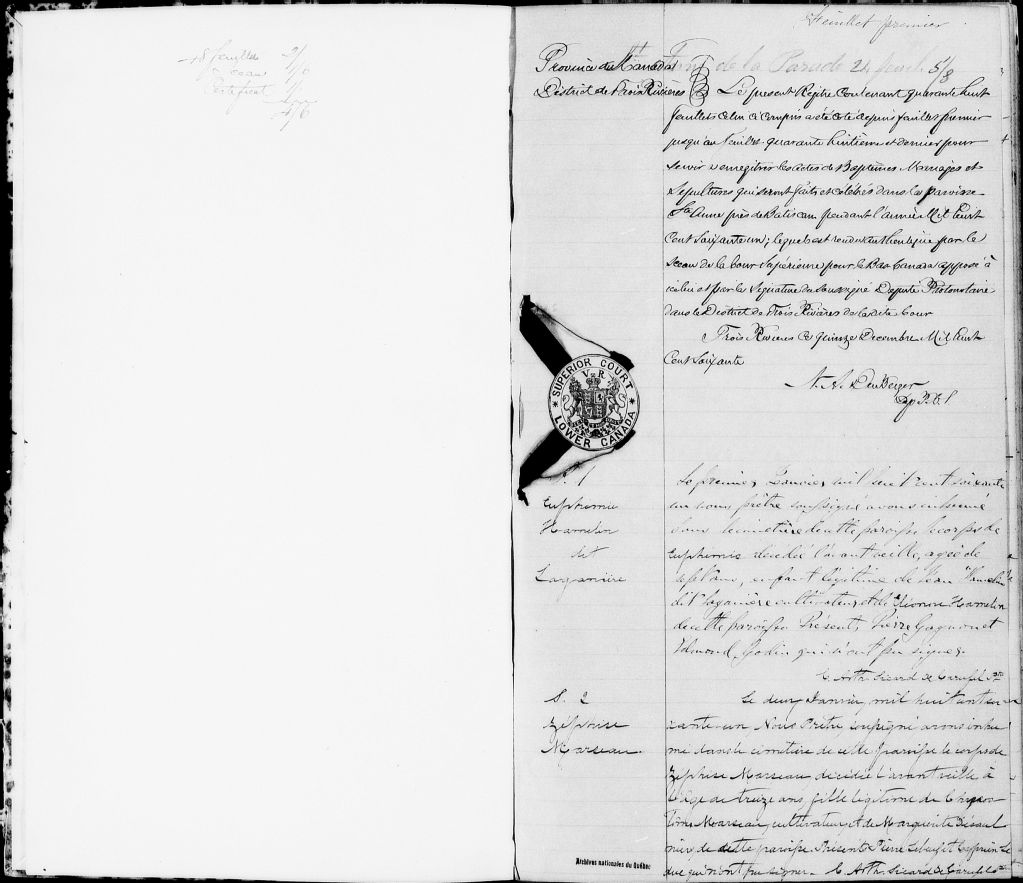 48 feuillets 2/
Sceau
Certificat
Feuillet premier
Province du Canada
District de Trois Rivières
de la Parade
Le present Registre Contenant quarante huit
feuillets Celui ci compris a été coté depuis feuillet premier
jusqu'au feuillet quarante huitième et dernier pour
servir à enregistrer les actes de Baptêmes Mariages et
Sépultures qui seront faits et célébrés dans la paroisse
Ste Anne près de Batiscan pendant l'année Mil huit
Cent Soixante un ; lequel est rendu authentique par le
Sceau de la Cour Supérieure pour le Bas Canada apposé à
icelui et par la Signature du Soussigné Députe Protonotaire
dans le District de Trois Rivières de la dite Cour
Trois Rivieres Ce quinze Decembre Mil huit
Cent Soixante
Dep P.C.S
SUPERIOR COURT
V R
LOWER CANADA
S. 1
Euphemie
Hamelin
dit
Laganière
Le premier Janvier mil huit cent soixante
un nous prêtre soussigné avons inhumé
dans le cimetière de cette paroisse le corps de
Euphemie décédée l'avant veille, agée de
sept ans, enfant légitime de Jean Hamelin
dit Laganière cultivateur et de Léonore Hamelin
de cette paroisse Présents, Pierre Gagnon et
Edmond Godin qui n'ont pu signer.
C. Arth. Sicard de Carufel Ptre
S. 2
Zéphise
Marseau
Le deux Janvier, mil huit cent soi-
xante-un Nous Prêtre soussigné avons inhu
mé dans le cimetière de cette paroisse le corps de
Zéphise Marseau décédée l'avant veille à
l'âge de treize ans fille légitime de
Marseau, cultivateur, et de Marguerite
de cette paroisse. Présents Pierre et
que n'ont pu signer. C. Arth. Sicard de Carufel Ptre
Archives nationales du Québec